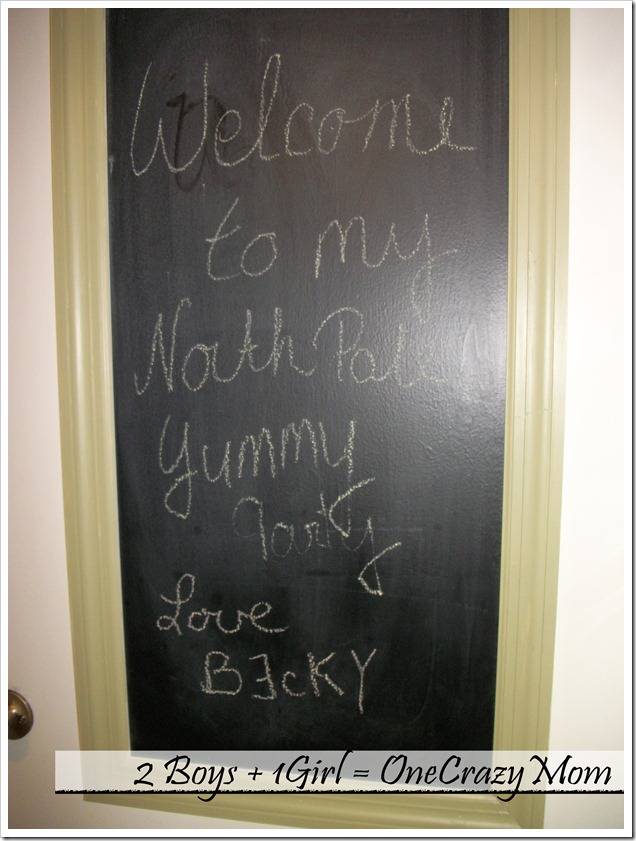 Welcome
to my
North Pole
yummy
Party
Love
BEcKY
2 Boys + 1Girl = OneCrazyMom